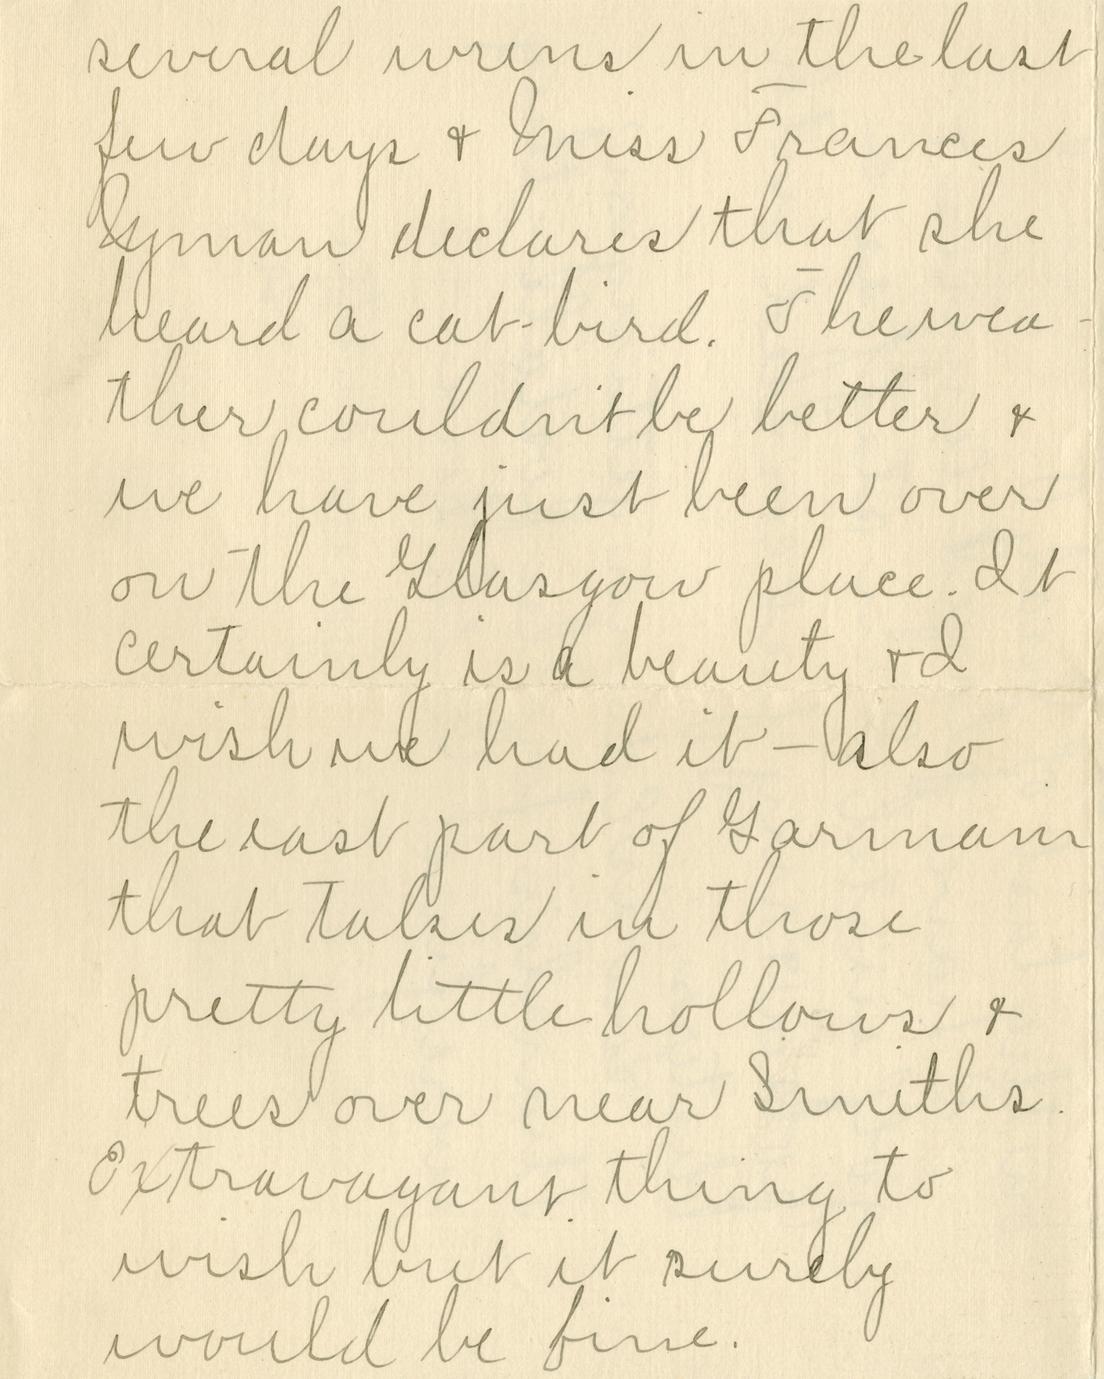 several wrens in the last
few days & Miss Frances
Lyman declares that she
heard a cat-bird. The wea-
ther couldn't be better &
we have just been over
on the Glasgow place. It
certainly is a beauty & I
wish we had it – also
the east part of Garmam
that takes in those
pretty little hollows &
trees over near Smiths.
Extravagant thing to
wish but it surely
would be fine.